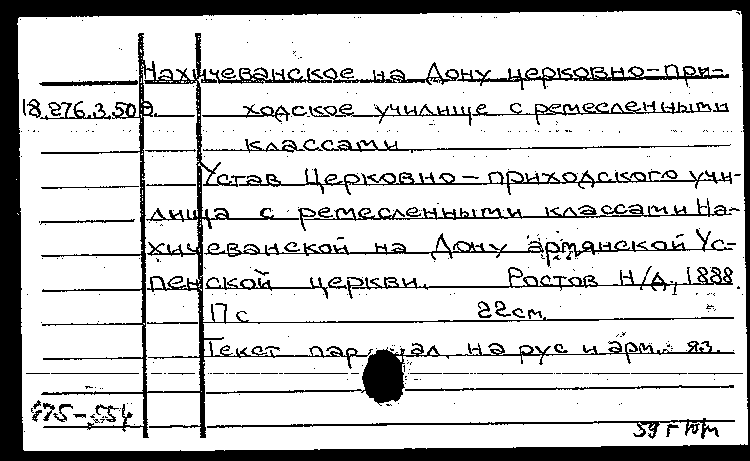 Нахичеванское на Дону церковно-при-
18.276.3.50
ходское училище с ремесленными
классами.
Устав Церковно-приходского учи-
лища с ремесленными классами На-
хичеванской на Дону армянской Ус-
пенской церкви. Ростов Н/Д, 1888.
17 с 22 см.
Текст пар ал. на рус и арм. яз.
475-554